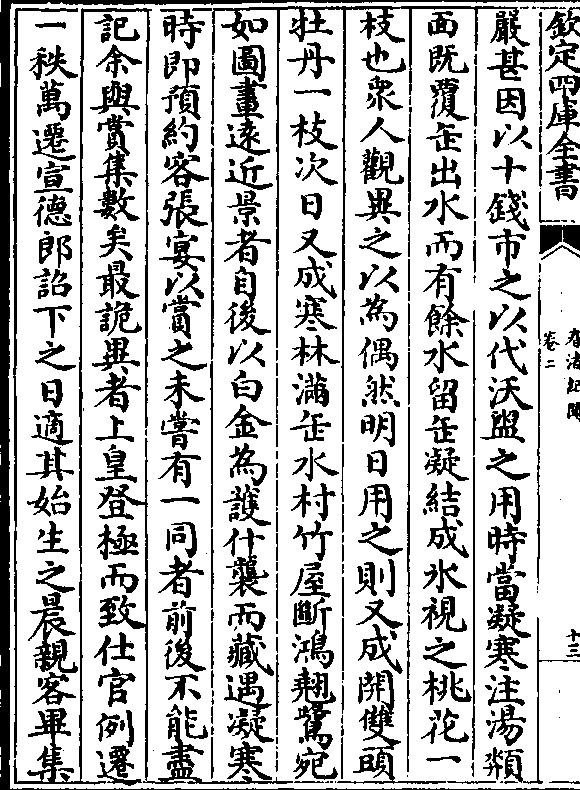 欽定四庫全書
春渚紀聞
卷二
十三
嚴甚因以十錢市之以代沃盥之用時當凝寒注湯頮
面既覆缶出水而有餘水留缶凝結成氷視之桃花一
枝也衆人觀異之以為偶然明日用之則又成開雙頭
牡丹一枝次日又成寒林滿缶水村竹屋斷鴻翹鷺宛
如圖畫遠近景者自後以白金為護什襲而藏遇凝寒
時即預約客張宴以當之未嘗有一同者前後不能盡
記余與賞集數矣最詭異者上皇登極而致仕官例遷
一秩萬遷宣德郎詔下之日適其始生之晨親客畢集